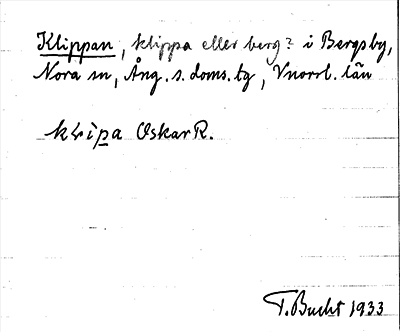 Klippan, klippa eller berg? i Bergsby,
Nora sn, Ång. s. doms. tg, Vnorrl. län
klipa Oskar R.
T. Bucht 1933